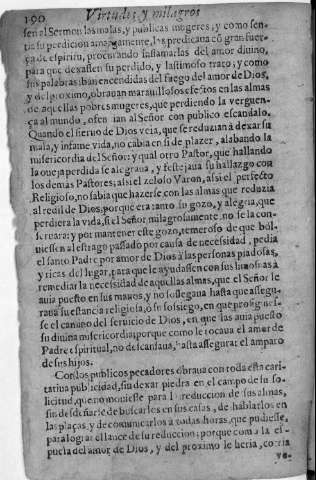 190 Virtudes, y milagros
sen al Sermon las malas, y publicas mugeres; y como sen-
tia su perdicion amargamente, les predicaua cō gran fuer-
ça de espiritu, procurando inflamarlas del amor diuino,
para que dexassen su perdido, y lastimoso trato; y como
sus palabras iban encendidas del fuego del amor de Dios,
y del proximo, obrauan marauillosos efectos en las almas
de aquellas pobres mugeres, que perdiendo la verguen-
ça al mundo, ofendian al Señor con publico escandalo.
Quando el sieruo de Dios veia, que se reduzian à dexar su
mala, y infame vida, no cabia en sì de plazer, alabando la
misericordia del Señor; y qual otro Pastor, que hallando
la oueja perdida se alegraua, y festejaua su hallazgo con
los demas Pastores; assi el zeloso Varon, assi el perfecto
Religioso, no sabia que hazerse con las almas que reduzia
al redil de Dios, porque era tanto su gozo, y alegria, que
perdiera la vida, si el Señor milagrosamente no se la con-
seruara; y por mantener este gozo, temeroso de que bol-
uiessen al estrago passado por causa de necessidad, pedia
el santo Padre por amor de Dios à las personas piadosas,
y ricas del lugar, para que le ayudassen con sus limosnas à
remediar la necessidad de aquellas almas, que el Señor le
auia puesto en sus manos, y no sossegaua hasta que assegu-
raua su estancia religiosa, ò su sossiego, en que prosiguies-
se el camino del seruicio de Dios, en que las auia puesto
su diuina misericordia; porque como le tocaua el amor de
Padre espiritual, no descansaua, hasta assegurar el amparo
de sus hijos.
Con los publicos pecadores obraua con toda esta cari-
tatiua publicidad, sin dexar piedra en el campo de su so-
licitud, que no mouiesse para la reduccion de sus almas,
sin desdeñarse de buscarlos en sus casas, de hablarlos en
las plaças, y de comunicarlos a todas horas, que pudiesse,
para lograr el lance de su reduccion; porque como la es-
puela del amor de Dios, y del proximo le heria, corria